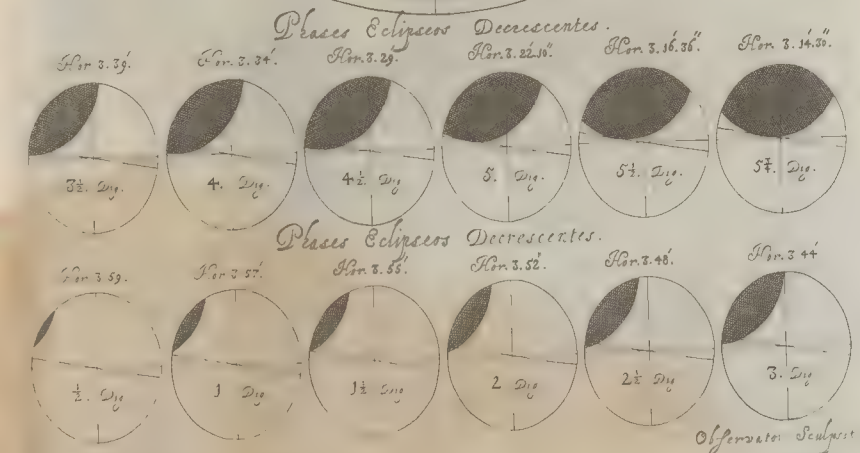 Phases Eclipseos Decrescentes.
Hor. 3.39'. Hor. 3.34'. Hor. 3.29'. Hor. 3.22'.10". Hor. 3.16'.36". Hor. 3.14'.30".
3½. Dig. 4. Dig. 4½. Dig 5. Dig. 5½. Dig. Dig.
Phases Eclipseos Decrescentes.
Hor. 3 59. Hor. 3 57'. Hor. 3.55'. Hor. 3.52'. Hor. 3.48'. Hor. 3 44'
½. Dig 1 Dig 1½ Dig 2 Dig 2½ Dig 3. Dig
Observator Sculpsit